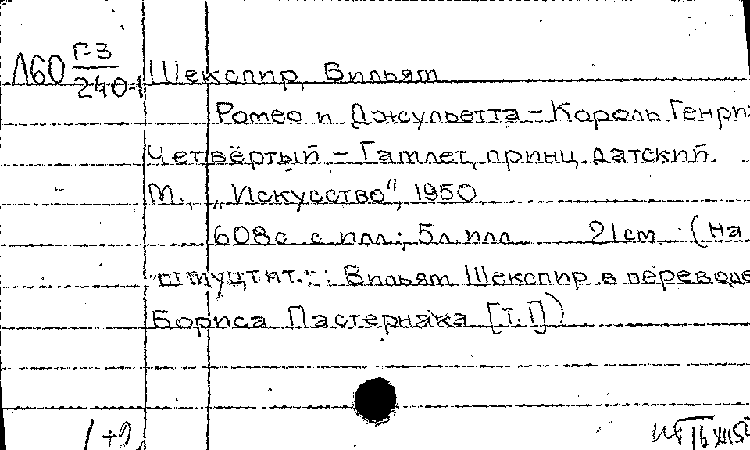 Л60 Г-3
240-1 Шекспир, Вильям
Ромео и Джульетта – Король Генри
Четвёртый – Гамлет, принц датский.
М., „Искусство", 1950
608с. с илл.; 5л. илл. 21см (На
шмуцтит.: Вильям Шекспир в переводе
Бориса Пастернака [т. I])